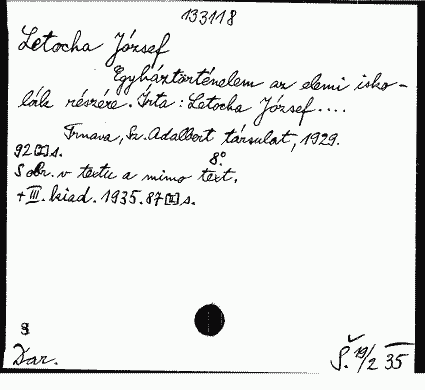 133118
Letocha József
Egyháztörténelem az elemi isko-
lák részére. Írta: Letocha József....
Trnava, Sz. Adalbert társulat, 1929.
92 [1] s. 8°
S obr. v textu a mimo text.
+ III. kiad. 1935. 87 [1] s.
Dar.
Š. 19/2 35